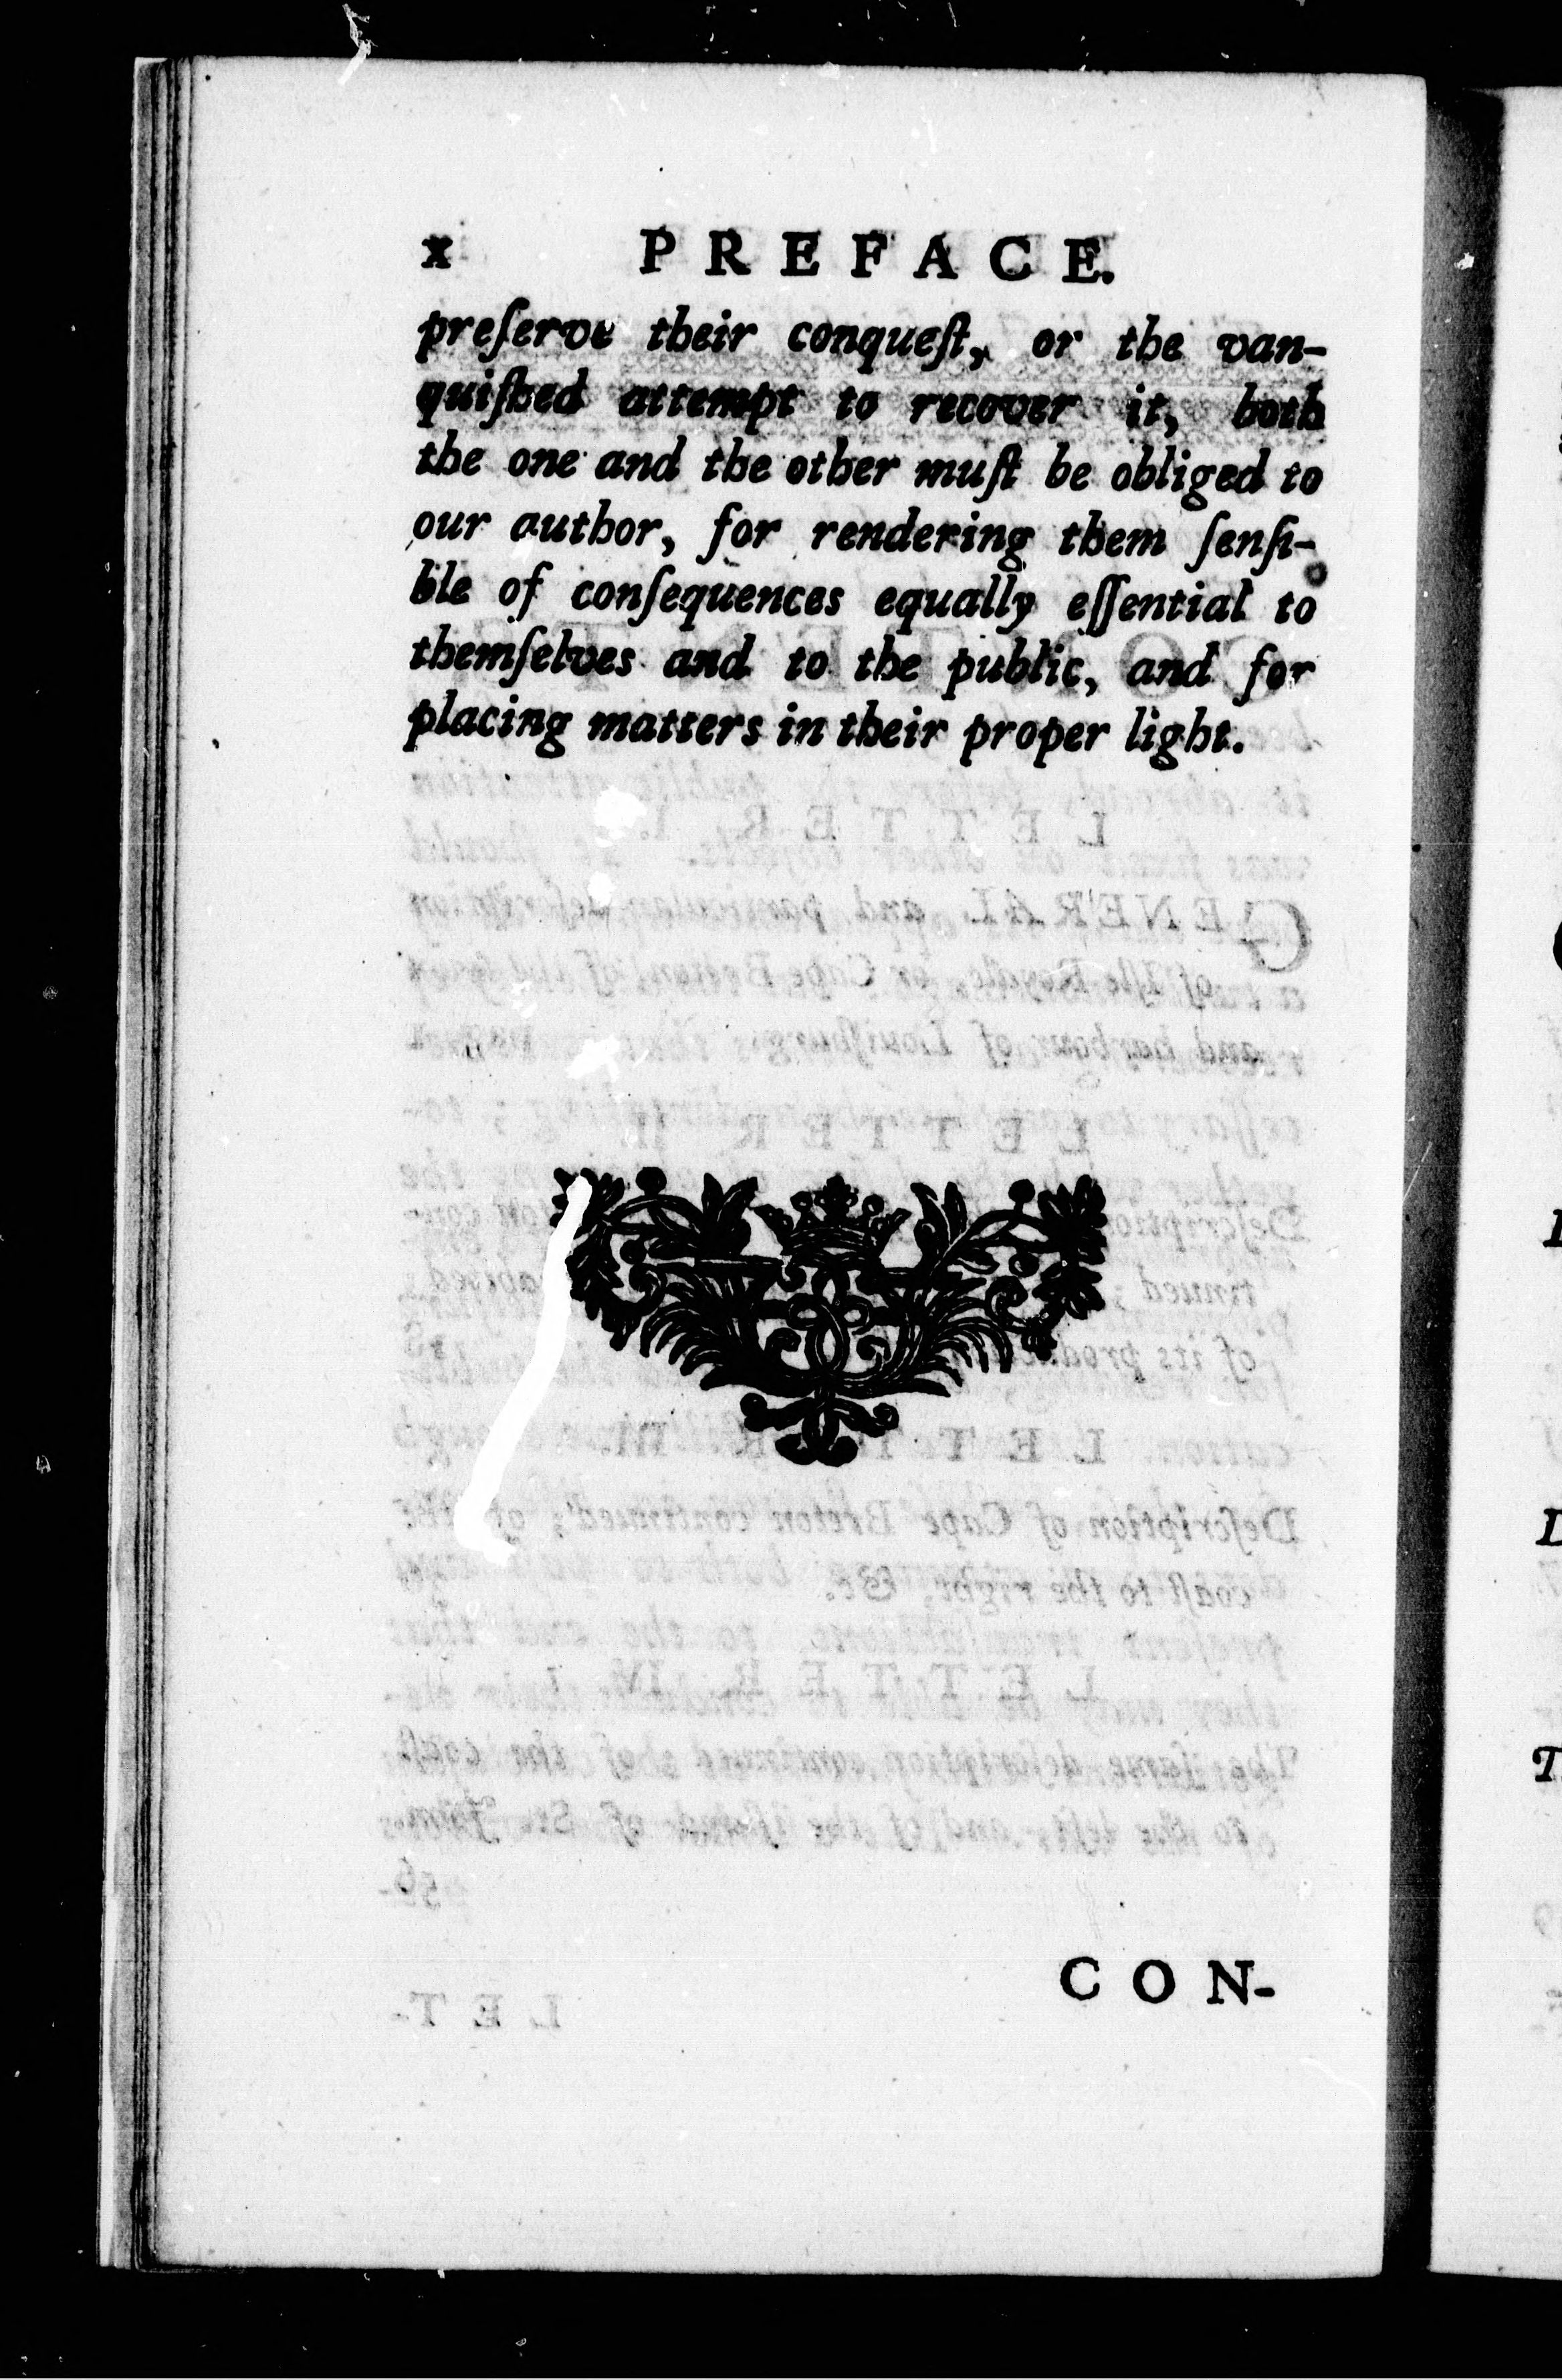 x PREFACE.
preſerve their conqueſt, or the van-
quiſhed attempt to recover it, both
the one and the other muſt be obliged to
our author, for rendering them ſenſi-
ble of conſequences equally eſſential to
themſelves and to the public, and for
placing matters in their proper light.
CON-